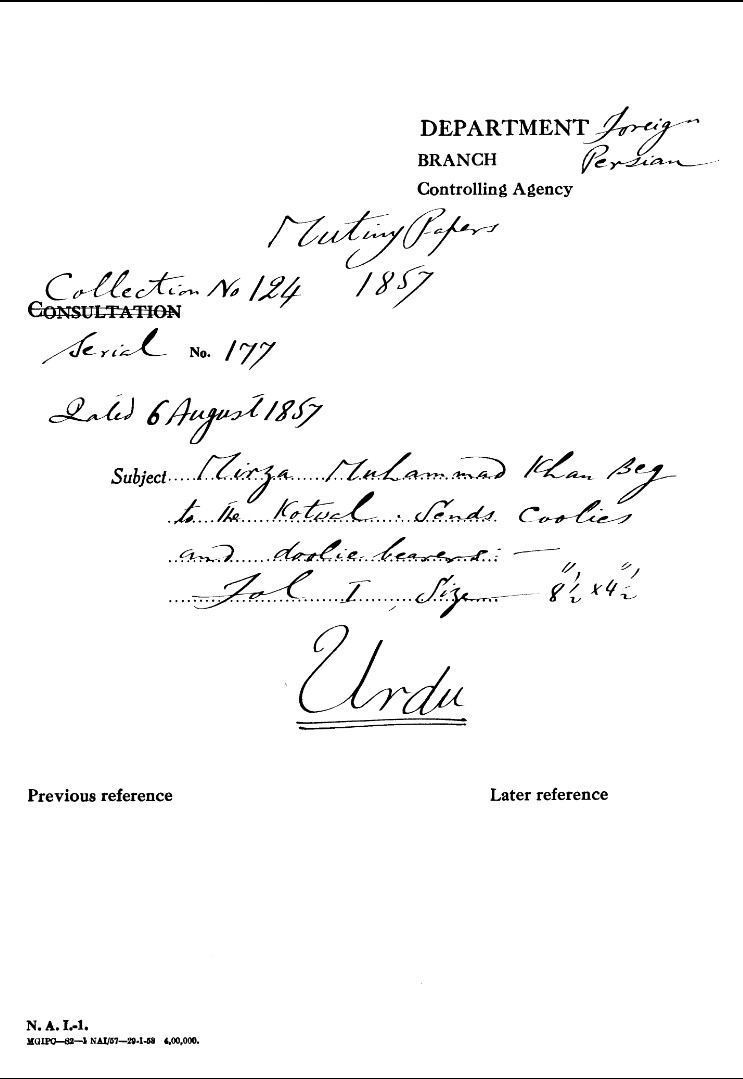 DEPARTMENT Foreign
BRANCH Persian
Controlling Agency
Mutiny Papers
Collection No 124 1857
CONSULTATION
Serial No. 177
Dated 6 August 1857
Subject Mirza Muhammad Khan Beg
to the Kotwal. Sends Coolies
and doolie bearers: —
Fol I, Size — 8½" x 4½"
Urdu
Previous reference Later reference
N. A. I.-1.
MGIPC—82—1 NAI/57—29-1-58 4,00,000.